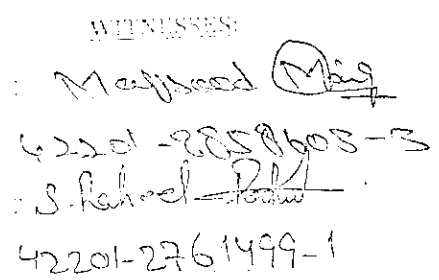 WITNESSES:
: Maqsood
42201-2858603-3
: S. Fahad
42201-2761499-1